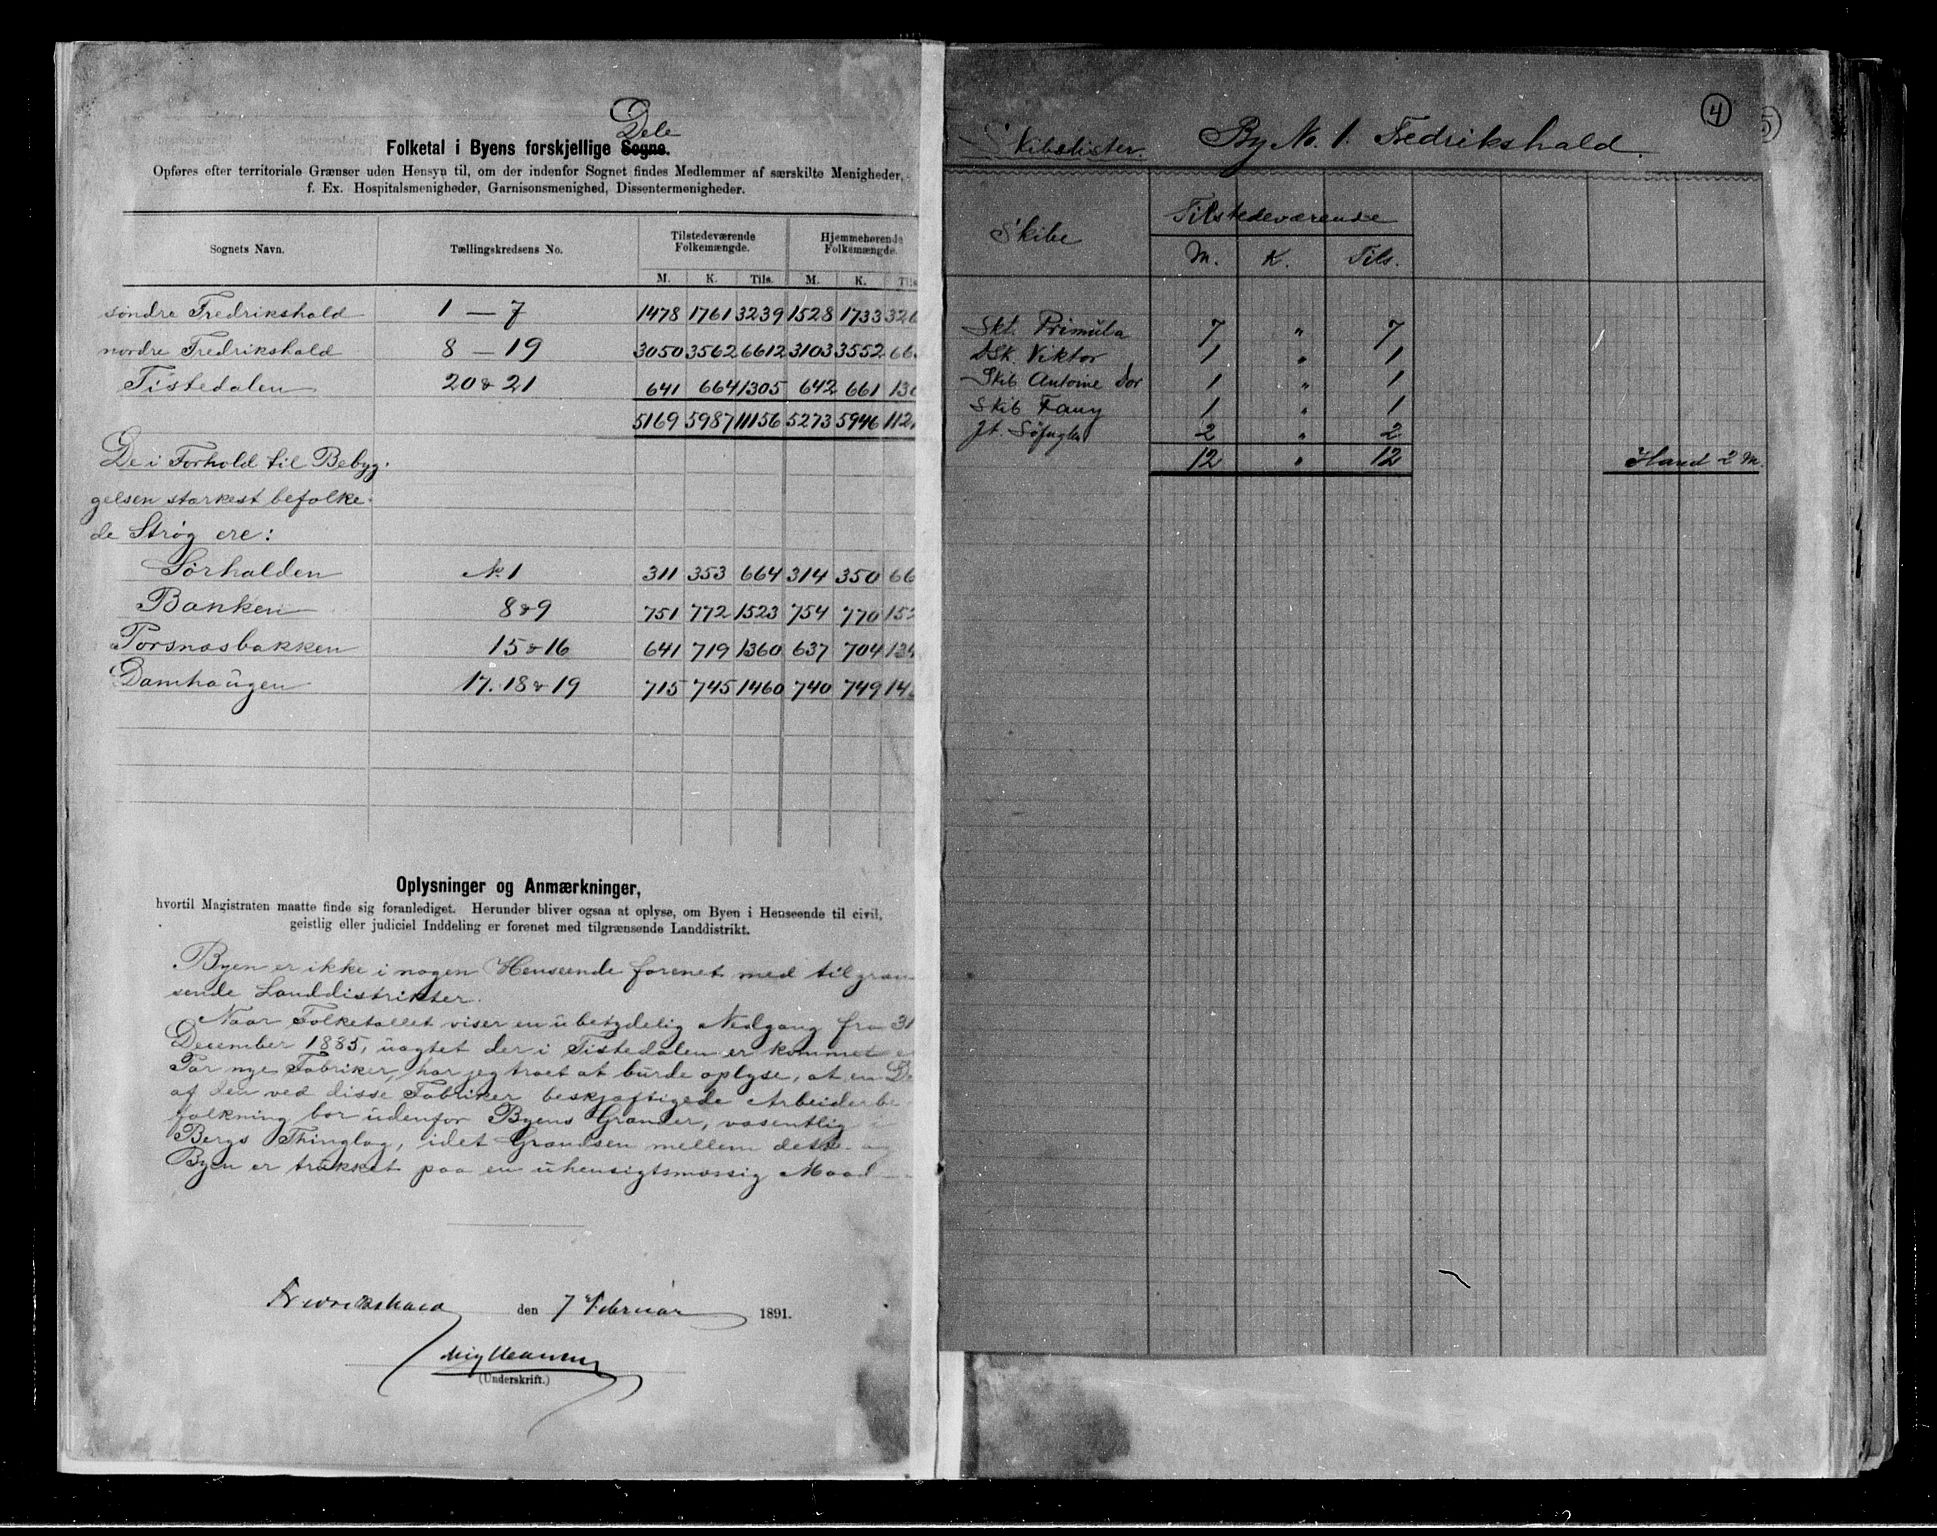 Dele
Folketal i Byens forskjellige Sogne.
Opføres efter territoriale Grænser uden Hensyn til, om der indenfor Sognet findes Medlemmer af særskilte Menigheder,
f. Ex. Hospitalsmenigheder, Garnisonsmenighed, Dissentermenigheder.
Sognets Navn. Tællingskredsens No. Tilstedeværende Folkemængde. Hjemmehørende Folkemængde.
M. K. Tils. M. K. Tils
søndre Fredrikshald 1 — 7 1478 1761 3239 1528 1733 326
nordre Fredrikshald 8 — 19 3050 3562 6612 3103 3552 66
Tistedalen 20 & 21 641 664 1305 642 661 130
5169 5987 11156 5273 5946 112
De i Forhold til Bebyg-
gelsen stærkest befolke-
de Strøg ere:
Sørhalden No 1 311 353 664 314 350 66
Banken 8 & 9 751 772 1523 754 770 152
Porsnæsbakken 15 & 16 641 719 1360 637 704 134
Damhaugen 17. 18 & 19 715 745 1460 740 749 14
Oplysninger og Anmærkninger,
hvortil Magistraten maatte finde sig foranlediget. Herunder bliver ogsaa at oplyse, om Byen i Henseende til civil,
geistlig eller judiciel Inddeling er forenet med tilgrænsende Landdistrikt.
Byen er ikke i nogen Henseende forenet med tilgræn
sende Landdistrikter.
Naar Folketallet viser en ubetydelig Nedgang fra 31
December 1885, uagtet der i Tistedalen er kommet
Par nye Fabriker, har jeg troet at burde oplyse, at en De
af den ved disse Fabriker beskjæftigede Arbeiderbe
folkning bor udenfor Byens Grænder, væsentlig i
Bergs Thinglag, idet Grændsen mellem dette og
Byen er trukket paa en uhensigtsmæssig Maad
Fredrikshald den 7 Februar 1891.
(Underskrift.)
4 5)
Skibslister. By No. 1. Fredrikshald.
Skibe Tilstedeværende
M. K. Tils.
Skt. Primula 7 " 7
DSk. Viktor 1 " 1
Skib Antoine Dor 1 " 1
Skib Fany 1 " 1
Jt. Søfuglen 2 " 2
12 " 12 Hand 2 M.